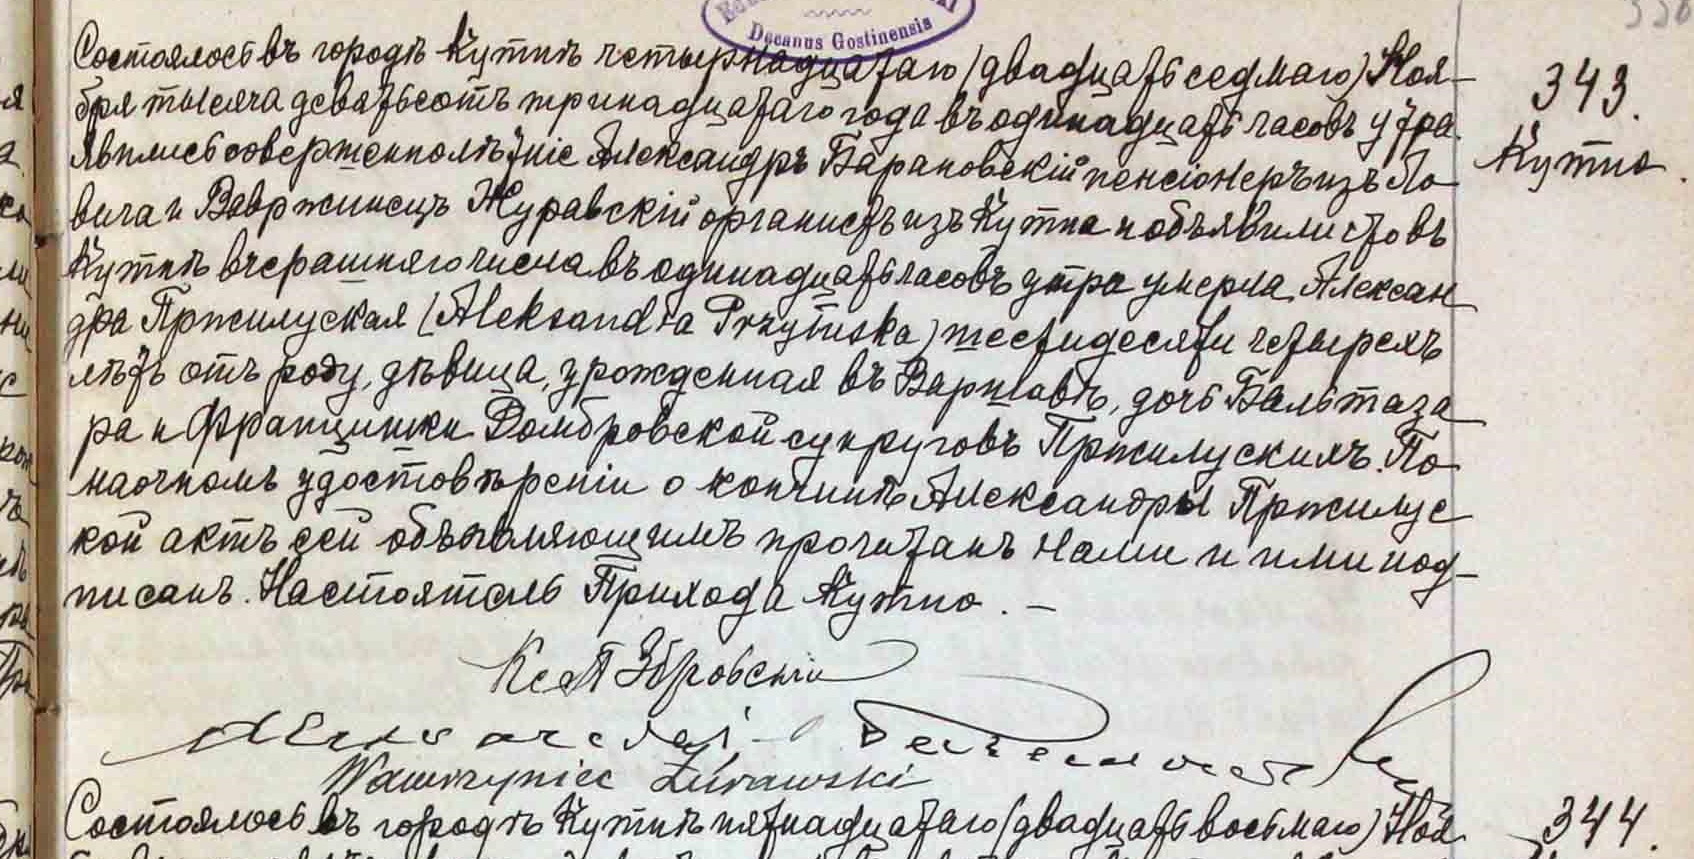 Decanus Gostinensis
Состоялось въ городѣ Кутнѣ четырнадцатаго (двадцать седмаго) Ноя-
343.
бря тысяча девятьсотъ тринадцатаго года въ одинадцать часовъ утра.
Кутно.
Явились совершеннолѣтніе Александръ Барановскій пенсіонеръ изъ Ло
вича и Вавржинецъ Журавскій органистъ изъ Кутна и объявили что въ
Кутнѣ вчерашняго числа въ одинадцать часовъ утра умерла Алексан
дра Пржилуская (Aleksandra Przyłuska) шестидесяти четырехъ
лѣтъ отъ роду, дѣвица, урожденная въ Варшавѣ, дочь Бальтаза
ра и Францишки Домбровской супруговъ Пржилускихъ. По
наочномъ удостовѣреніи о кончинѣ Александры Пржилус
кой актъ сей объявляющимъ прочитанъ Нами и ими под-
писанъ. Настоятель Прихода Кутно. -
Кс
Wawrzyniec Żurawski
Состоялось въ городѣ Кутнѣ пятнадцатаго (двадцать восьмаго) Ноя
344.